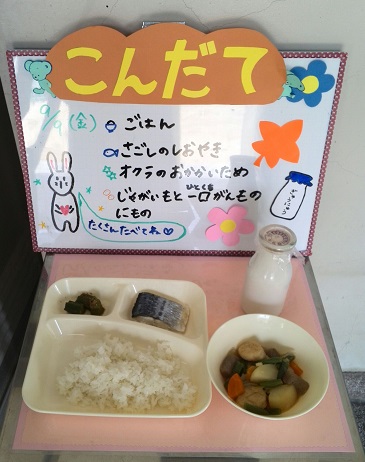 こんだて
9/9(金)
ごはん
さごしのしおやき
オクラのおかかいため
じゃがいもと一口がんもの
ひとくち
にもの
たくさんたべてね
ぎゅうにゅう